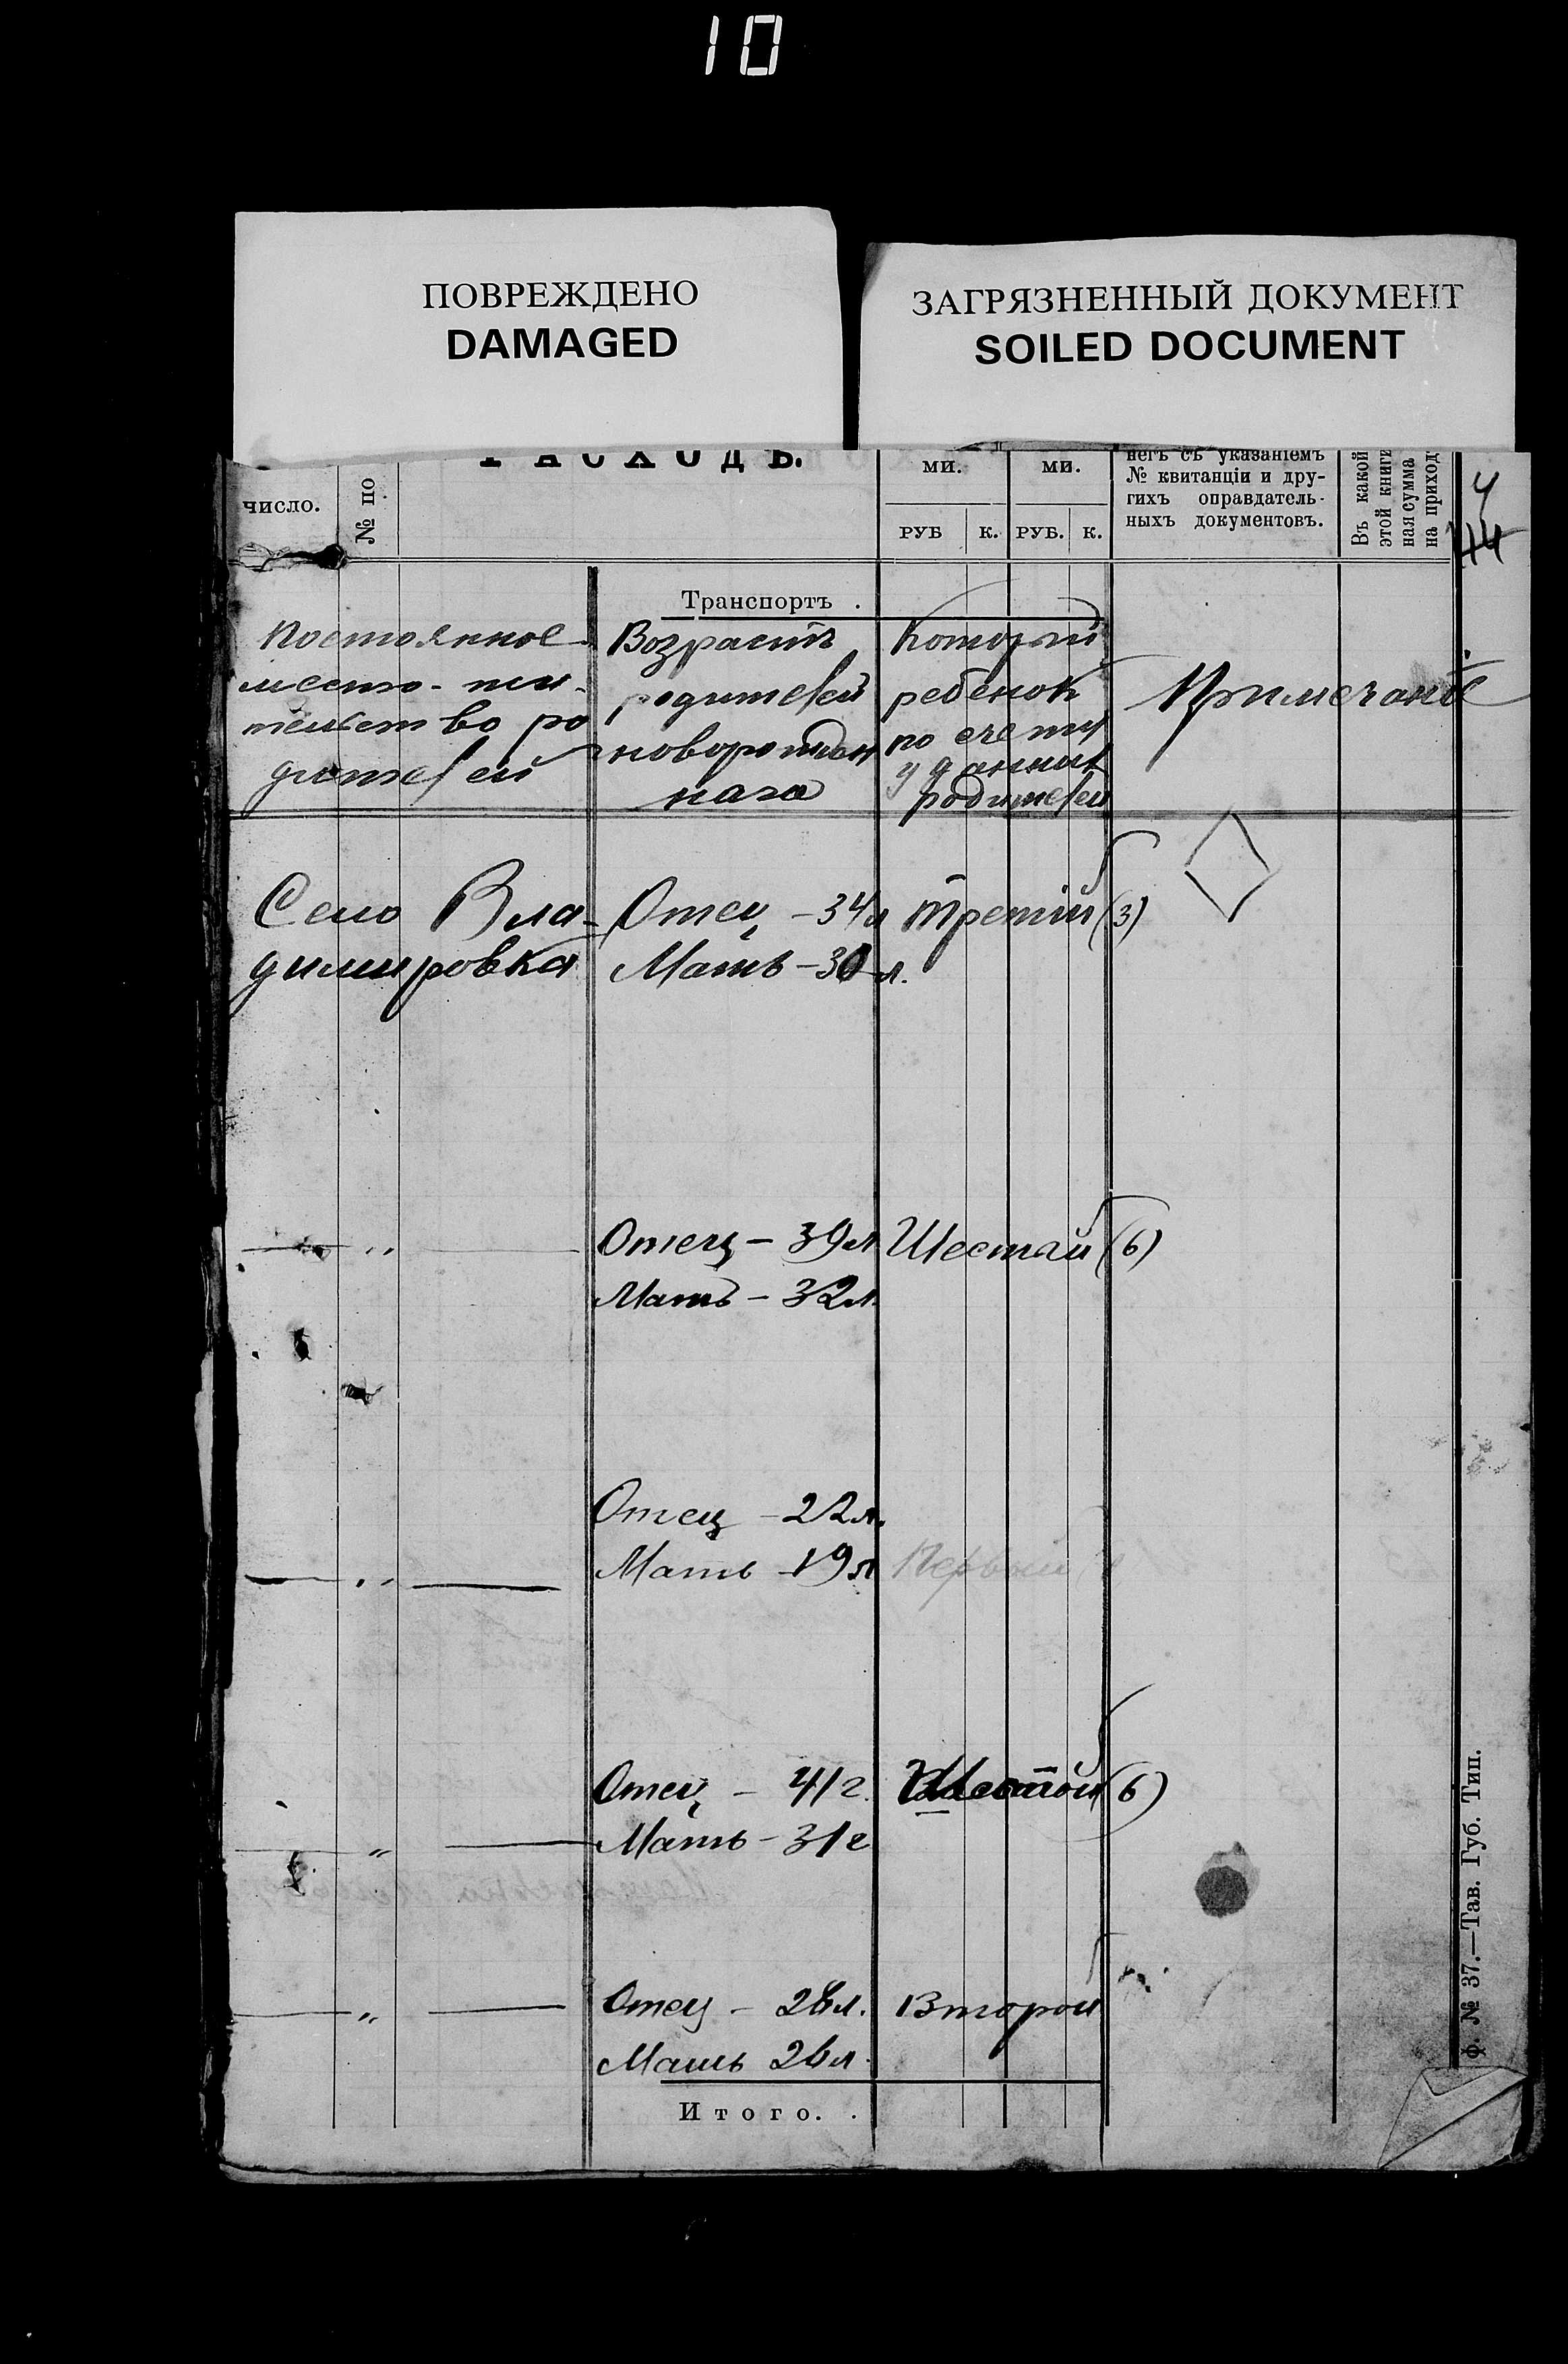 10
ПОВРЕЖДЕНО
DAMAGED
ЗАГРЯЗНЕННЫЙ ДОКУМЕНТ
SOILED DOCUMENT
РАСХОДЪ.
число.
№ по
ми.
ми.
РУБ
К.
РУБ.
К.
негъ съ указаніемъ
№ квитанціи и дру-
гихъ оправдатель-
ныхъ документовъ.
Въ какой
этой книги
ная сумма
на приход
4
44
Транспортъ .
Постоянное
место-жи-
тельство ро
дителей
Возрастъ
родителей
новорожден
наго
Который
ребенок
по счету
у данных
родителей
Примечание
Село Вла-
димировка
Отец - 34 л
Мать - 30 л.
Третий (3)
— " —
Отец - 39 л
Мать - 32 л.
Шестой (6)
Отец - 22 л.
Мать - 19 л
Первый
— " —
Отец - 41 г.
Мать - 31 г
Шестой (6)
— " —
— " —
Отец - 28 л.
Мать 26 л.
Второй
Итого. .
Ф. № 37.—Тав. Губ. Тип.